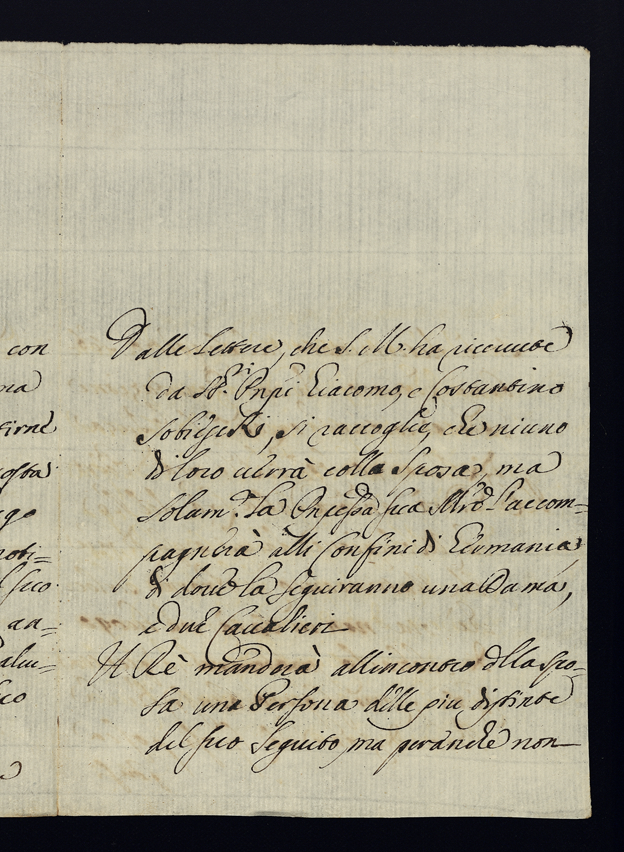 con
na
tirne
osta
go
noti=
suo
an=
alu=
suo
Dalle Lettere, che S. M. ha ricevute
da Sri. Pnpi Giacomo, e Costantino
Sobieski, si raccoglie, che niuno
di loro verrà colla Sposa, ma
solamte. la Pnpessa sua Mrd. l'accom=
pagnerà alli Confini di Germania
di dove la seguiranno una Dama,
e due Cavalieri
Il Rè manderà all'incontro della spo=
sa una Persona delle più distinte
del suo Seguito, ma peranche non